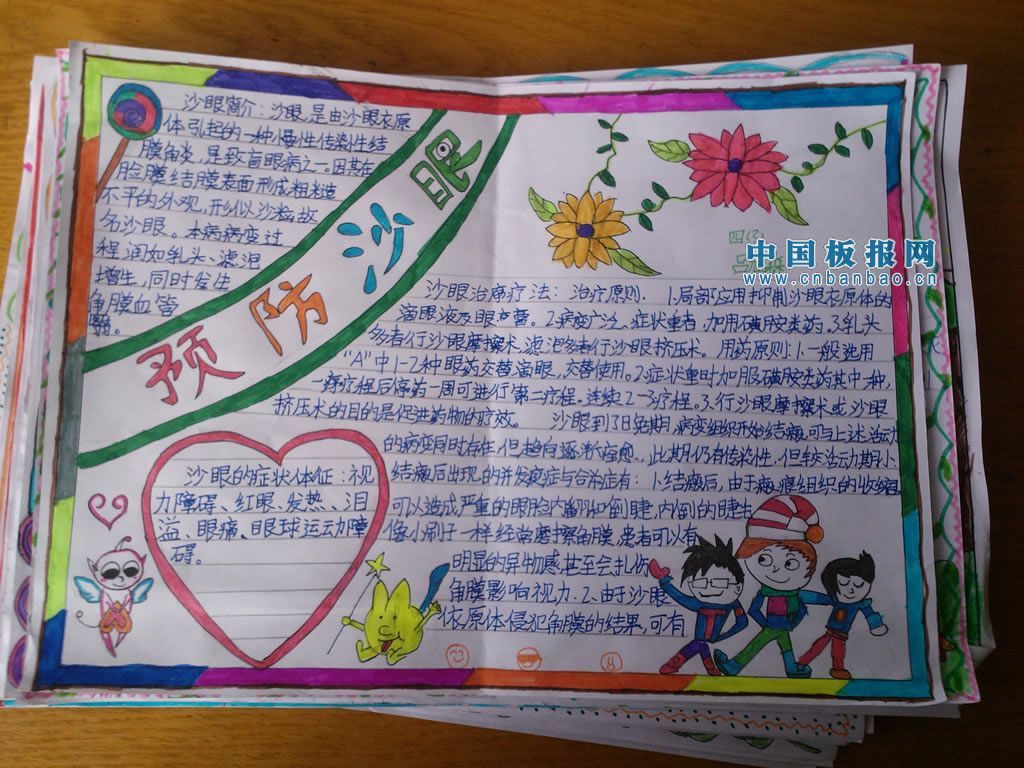 预防沙眼
沙眼简介：沙眼是由沙眼衣原
体引起的一种慢性传染性结
膜角炎，是致盲眼病之一。因其在
脸膜结膜表面形成粗糙
不平的外观，形似沙粒，故
名沙眼。本病病变过
程润如乳头、滤泡
增生，同时发生
角膜血管
翳。
四(2)
中国板报网
www.cnbanbao.cn
沙眼治疗疗法：治疗原则. 1.局部应用抑制沙眼衣原体的
滴眼液及眼膏。2.病变广泛、症状重者，加用磺胺类药。3.乳头
多者行沙眼摩擦术，滤泡多者行沙眼挤压术。用药原则：1.一般选用
“A”中1-2种眼药交替滴眼，交替使用。2.症状重时加服磺胺类药其中一种，
一疗程后停药一周可进行第二疗程。连续2-3疗程。3.行沙眼摩擦术或沙眼
挤压术的目的是促进药物的疗效。 沙眼到了日免期，病变组织开始结瘢，可与上述活动
的病变同时存在，但趋向逐渐痊愈.，此期仍有传染性，但较活动期小
结瘢后出现的并发症与合并症有：1.结瘢后，由于瘢痕组织的收缩，
可以造成严重的眼脸内翻和倒睫，内倒的睫毛
像小刷子一样经常摩擦角膜，患者可以有
明显的异物感，甚至会扎伤
角膜影响视力。2.由于沙眼
依原体侵犯角膜的结果，可有
沙眼的症状体征：视
力障碍、红眼、发热、泪
溢、眼痛、眼球运动障
碍。